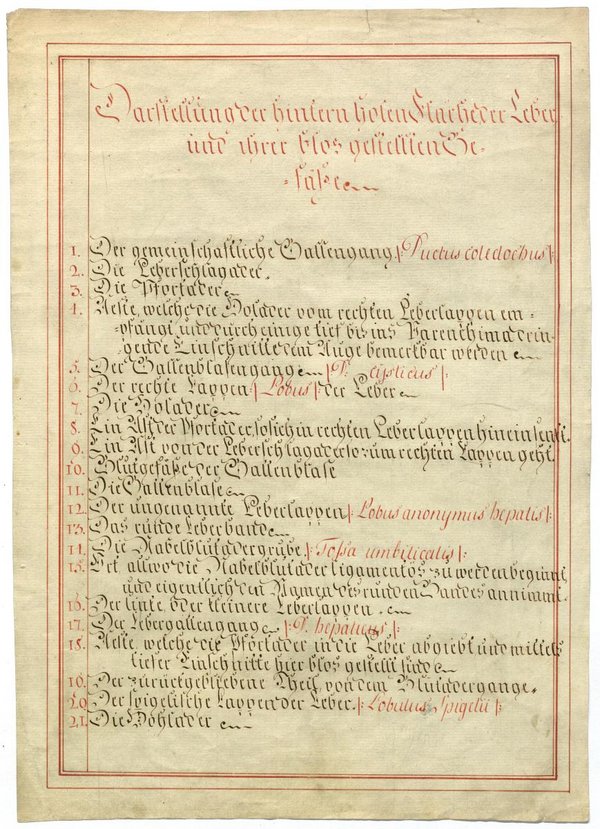 Darstellung der hintern holen Flache der Leber
und ihrer blos gestellten Ge-
-faße
1. Der gemeinschaftliche Gallengang |: Ductus coledochus :|
2. Die Leberschlagader.
3. Die Pfortader
4. Aeste, welche die Holader vom rechten Leberlappen em-
-pfängt, und durch einige tief bis ins Parenchima drin-
gende Einschnitte dem Auge bemerkbar werden
5. Der Gallenblasengang |: D. cisticus :|
6. Der rechte Lappen |: Lobus :| der Leber
7. Die Holader
8. Ein Ast der Pfortader, so sich in rechten Leberlappen hineinsenkt.
9. Ein Ast von der Leberschlagader so zum rechten Lappen geht.
10. Blutgefäße der Gallenblase
11. Die Gallenblase
12. Der ungenannte Leberlappen |: Lobus anonymus hepatis :|
13. Das runde Leberband
14. Die Nabelblutadergrube |: Fossa umbilicalis :|
15. Ort allwo die Nabelblutader ligamentös zu werden beginnt,
und eigentlich den Namen des runden Bandes annimmt.
16. Der linke oder kleinere Leberlappen.
17. Der Lebergallengang |: D. hepaticus :|
18. Aeste, welche die Pfortader in die Leber abgiebt und mittels
tiefer Einschnitte hier blos gestellt sind
19. Der zurückgebliebene Theil von dem Blutadergange.
20. Der spigelische Lappen der Leber |: Lobulus Spigelii :|
21. Die Hohlader